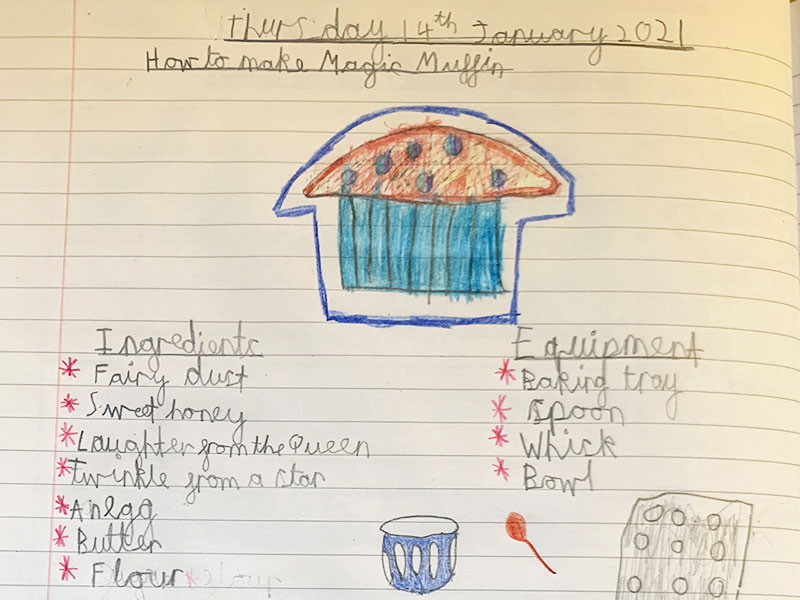 Thursday 14th January 2021
How to make Magic Muffin
Ingredients
* Fairy dust
* Sweet honey
* Laughter from the Queen
* Twinkle from a star
* An egg
* Butter
* Flour
Equipment
* Baking tray
* Spoon
* Whick
* Bowl